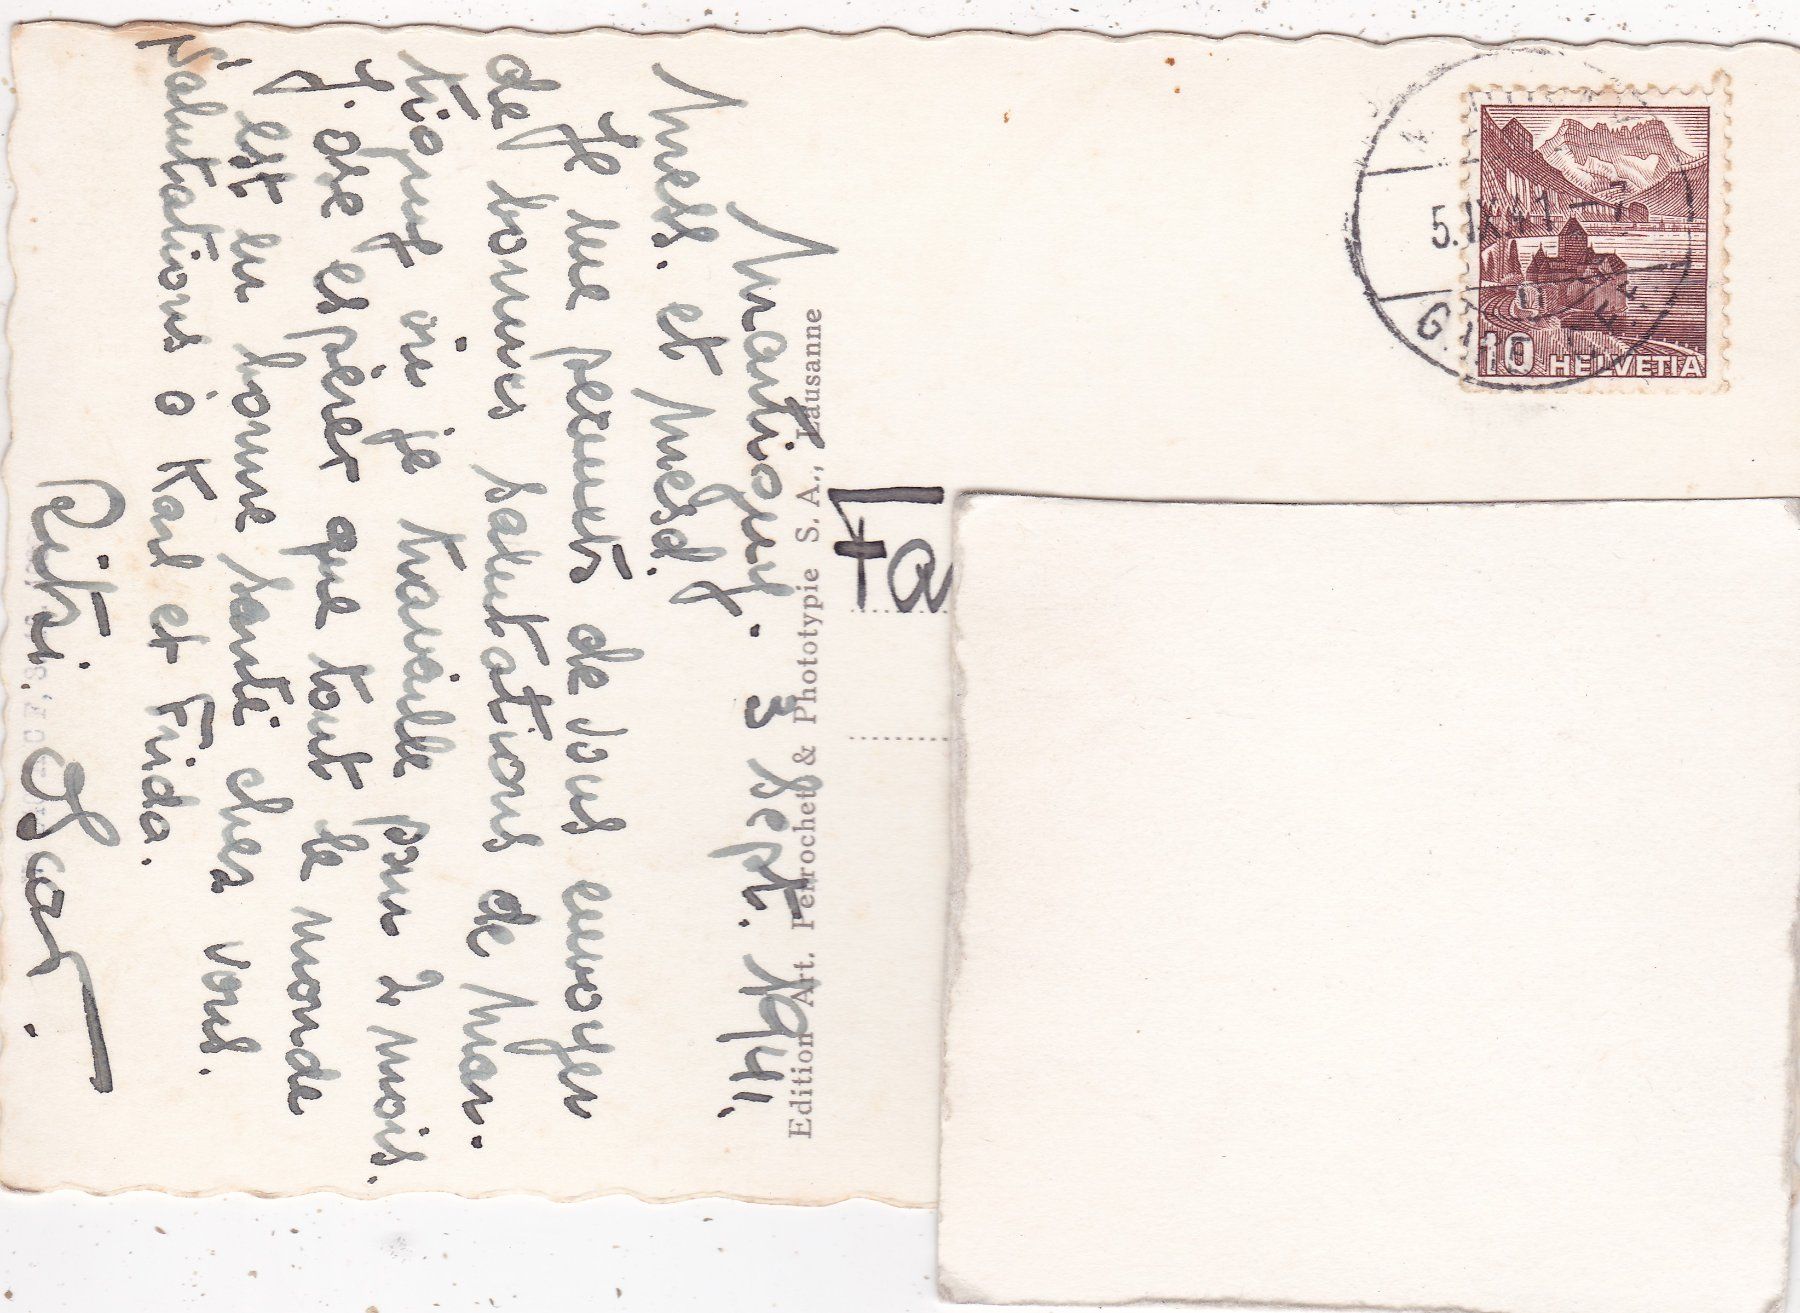 Martigny. 3 Sept. 1941.
Mess. et Mesd.
Je me permets de vous envoyer
de bonnes salutations de Mar-
tigny où je travaille pour 2 mois.
J'ose espérer que tout le monde
est en bonne santé chez vous.
Salutations à Karl et Frida.
Edition Art. Perrochet & Phototypie S. A., Lausanne
Fa
5.IX.41-7
10 HELVETIA